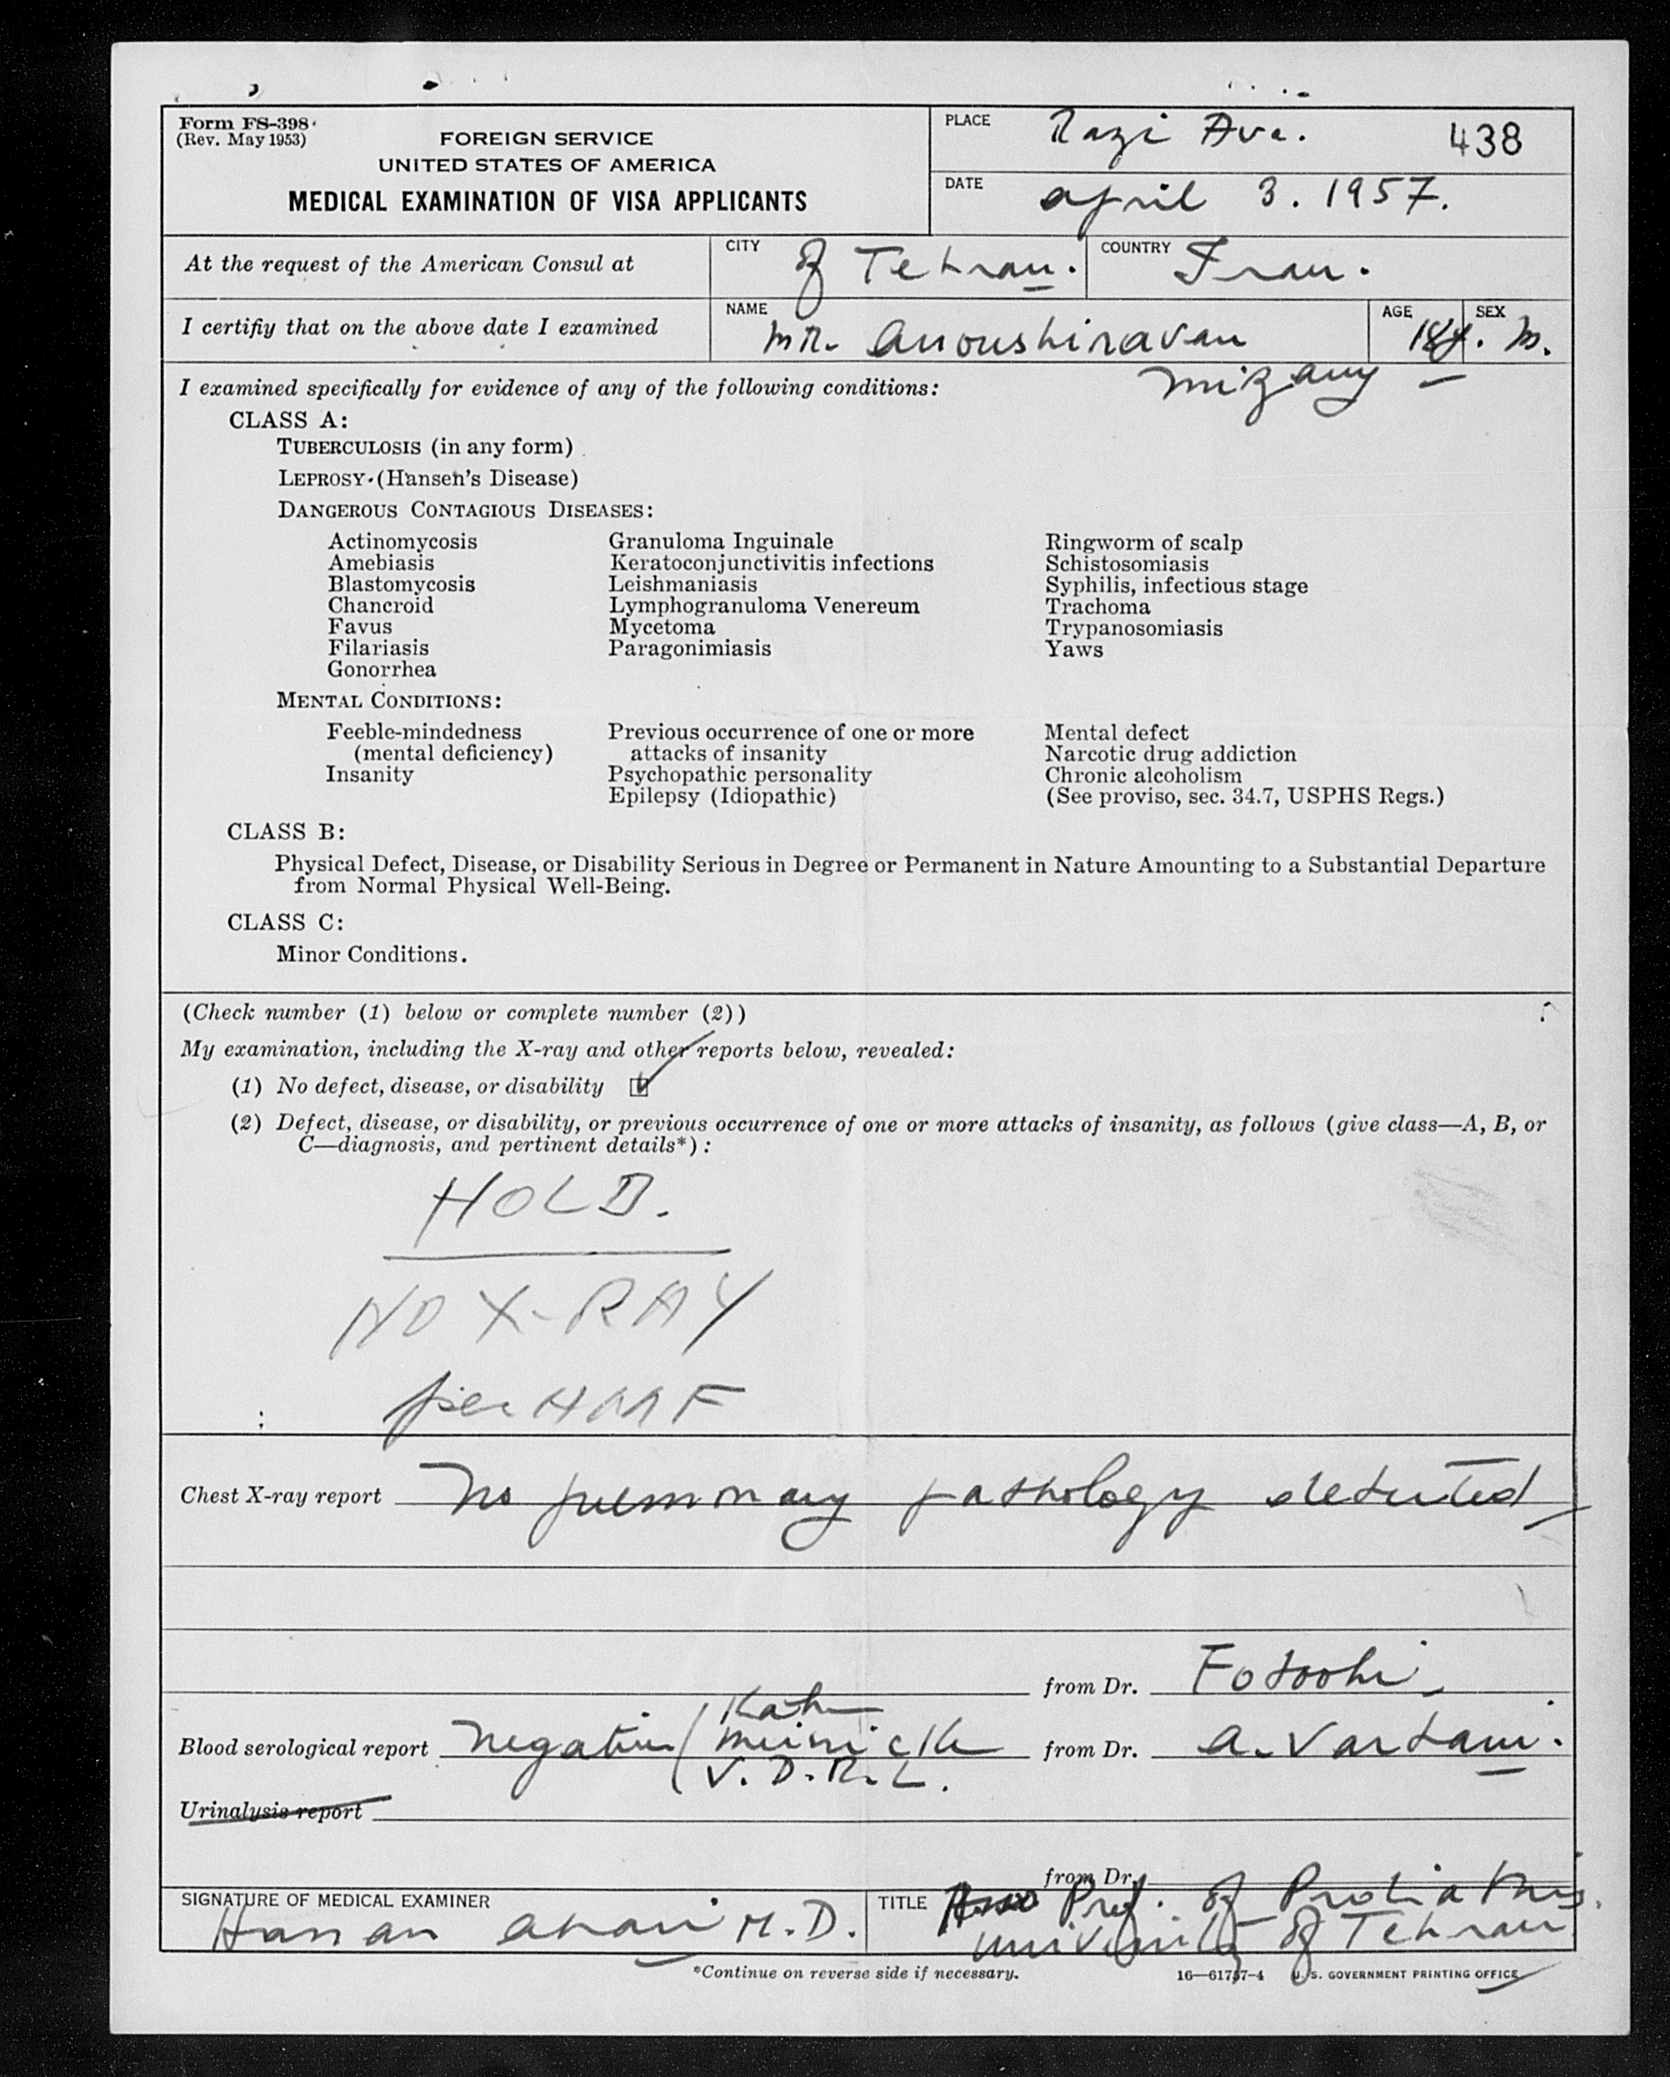 Form FS-398
(Rev. May 1953)
FOREIGN SERVICE
UNITED STATES OF AMERICA
MEDICAL EXAMINATION OF VISA APPLICANTS
PLACE Razi Ave. 438
DATE april 3. 1957.
At the request of the American Consul at
CITY of Tehran.
COUNTRY Iran.
I certifiy that on the above date I examined
NAME MR. Anoushiravan
mizany
AGE 18y.
SEX M.
I examined specifically for evidence of any of the following conditions:
CLASS A:
TUBERCULOSIS (in any form)
LEPROSY (Hansen's Disease)
DANGEROUS CONTAGIOUS DISEASES:
Actinomycosis Granuloma Inguinale Ringworm of scalp
Amebiasis Keratoconjunctivitis infections Schistosomiasis
Blastomycosis Leishmaniasis Syphilis, infectious stage
Chancroid Lymphogranuloma Venereum Trachoma
Favus Mycetoma Trypanosomiasis
Filariasis Paragonimiasis Yaws
Gonorrhea
MENTAL CONDITIONS:
Feeble-mindedness Previous occurrence of one or more Mental defect
(mental deficiency) attacks of insanity Narcotic drug addiction
Insanity Psychopathic personality Chronic alcoholism
Epilepsy (Idiopathic) (See proviso, sec. 34.7, USPHS Regs.)
CLASS B:
Physical Defect, Disease, or Disability Serious in Degree or Permanent in Nature Amounting to a Substantial Departure
from Normal Physical Well-Being.
CLASS C:
Minor Conditions.
(Check number (1) below or complete number (2))
My examination, including the X-ray and other reports below, revealed:
(1) No defect, disease, or disability
(2) Defect, disease, or disability, or previous occurrence of one or more attacks of insanity, as follows (give class—A, B, or
C—diagnosis, and pertinent details*):
HOLD.
NO X-RAY
per
Chest X-ray report No pulmonary pathology detected
from Dr. Fotoohi
Kahn
Blood serological report Negative ( meinicke from Dr. A. Vartani.
V.D.R.L.
Urinalysis report
from Dr.
SIGNATURE OF MEDICAL EXAMINER
Hassan ahari M.D.
TITLE Prof. of
University of Tehran
*Continue on reverse side if necessary.
16—61757-4 U. S. GOVERNMENT PRINTING OFFICE